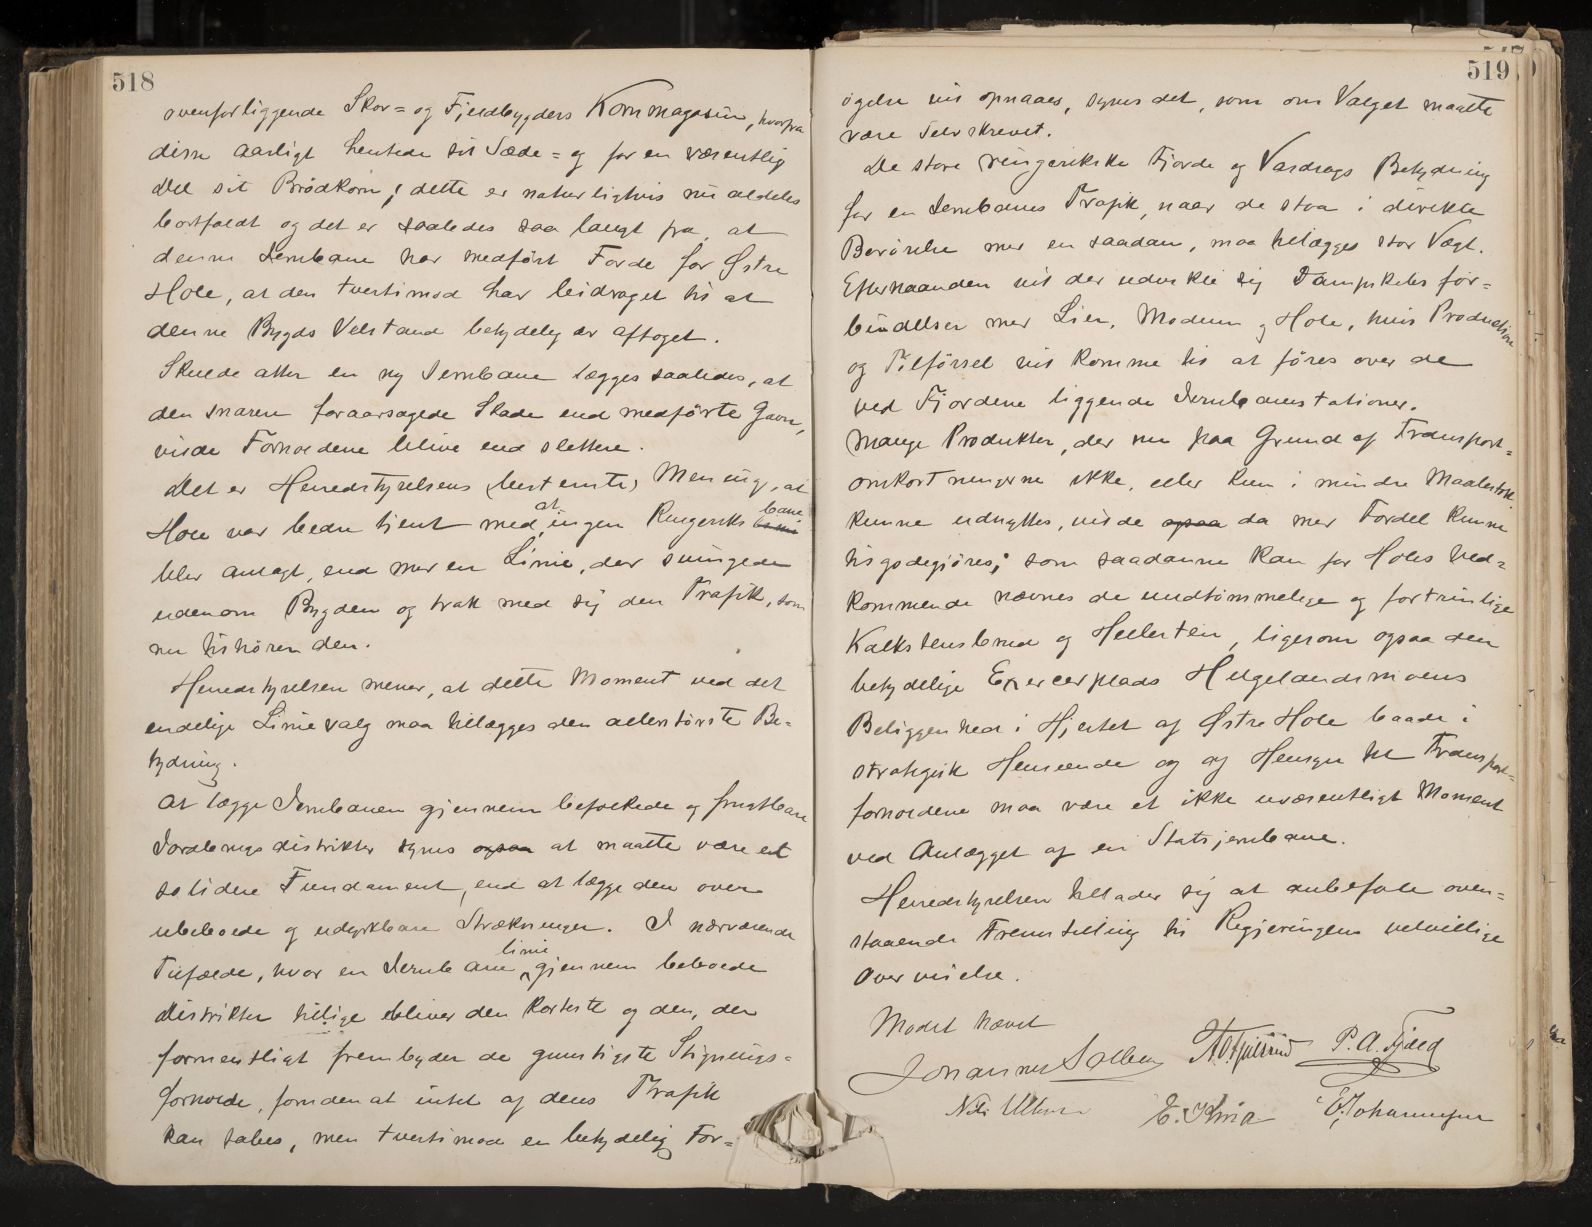 518
ovenforliggende Skov= og Fjeldbygders Kornmagasin, hvorfra
disse aarligt hentede sit Sæde= og for en væsentlig
Del sit Brødkorn; dette er naturligvis nu aldeles
bortfaldt og det er saaledes saa langt fra, at
denne Jernbane har medført Fordel for Østre
Hole, at den tvertimod har bidraget til at
denne Bygds Velstand betydelig er aftaget.
Skulde atter en ny Jernbane lægges saaledes, at
den snarere foraarsagede Skade end medførte Gavn,
vilde Forholdene blive end slettere.
Det er Herredstyrelsens bestemte Mening, at
Hole var bedre tjent med, at ingen Ringeriksbane
blev anlagt, end med en Linie, der svingede
udenom Bygden og trak med sig den Trafik, som
nu tilhører den.
Herredstyrelsen mener, at dette Moment ved det
endelige Linievalg maa tillægges den allerstørste Be=
tydning.
At lægge Jernbanen gjennem befolkede og frugtbare
Jordbrugsdistrikter synes ogsaa at maatte være et
solidere Fundament, end at lægge den over
ubeboede og udyrkbare Strækninger. I nærværende
Tilfælde, hvor en Jernbanelinie gjennem beboede
Distrikter tillige bliver den korteste og den, der
formentligt frembyder de gunstigste Stignings=
forholde, foruden at intet af dens Trafik
kan tabes, men tvertimod en betydelig For=
519
øgelse vil opnaaes, synes det, som om Valget maatte
være selvskrevet.
De store ringerikske Fjorde og Vasdrags Betydning
for en Jernbanes Trafik, naar de staa i direkte
Berørelse med en saadan, maa tillægges stor Vægt.
Efterhaanden vil der udvikle sig Dampskibsfor=
bindelser med Lier, Modum og Hole, hvis Produktion
og Tilførsel vil komme til at føres over de
ved Fjordene liggende Jernbanestationer.
Mange Produkter, der nu paa Grund af Transport=
omkostningerne ikke, eller kun i mindre Maalestok
kunne udnyttes, vilde ogsaa da med Fordel kunne
tilgodegjøres; som saadanne kan for Holes Ved=
kommende nævnes de uudtømmelige og fortrinlige
Kalkstensbrud og Hellesten, ligesom ogsaa den
betydelige Exercerplads Helgelandsmoens
Beliggenhed i Hjertet af Østre Hole baade i
strategisk Henseende og af Hensyn til Transport=
forholdene maa være et ikke uvæsentligt Moment
ved Anlægget af en Statsjernbane.
Herredstyrelsen tillader sig at anbefale oven=
staaende Fremstilling til Regjeringens velvillige
Overveielse.
Mødet hævet
Johannes Solberg P. A. Fjeld
E. Johannesen